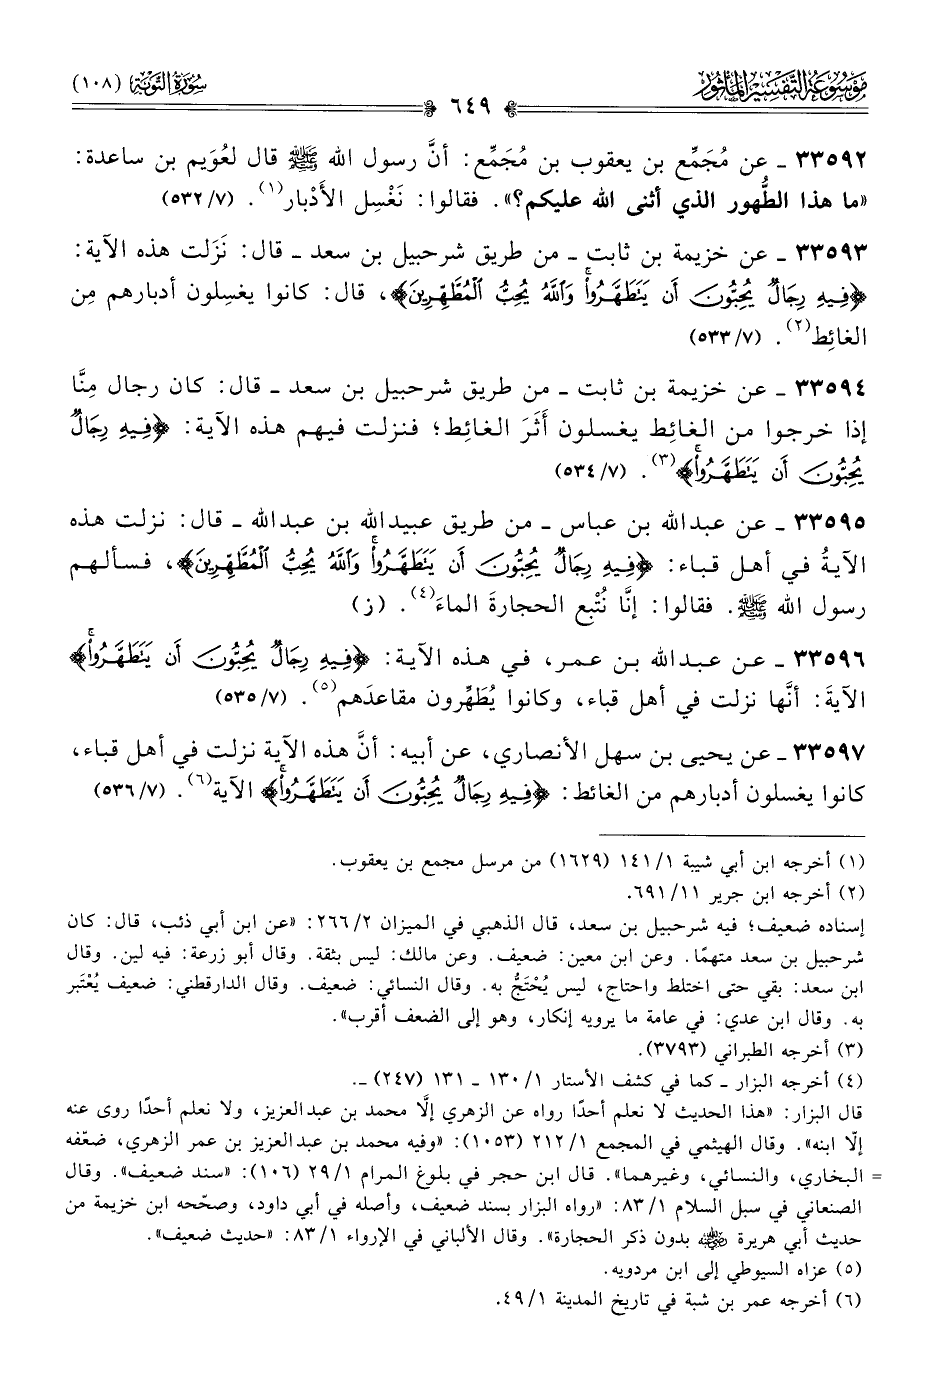 موسوعة التفسير المأثور
سورة التوبة (١٠٨)
٦٤٩
٣٣٥٩٢ ـ عن مُجَمِّع بن يعقوب بن مُجَمِّع: أنَّ رسول الله ﷺ قال لعُوَيم بن ساعدة:
«ما هذا الطُّهور الذي أثنى الله عليكم؟». فقالوا: نَغْسِل الأَدْبار(١). (٧/ ٥٣٢)
٣٣٥٩٣ ـ عن خزيمة بن ثابت ـ من طريق شرحبيل بن سعد ـ قال: نَزَلت هذه الآية:
﴿فِيهِ رِجَالٌ يُحِبُّونَ أَن يَتَطَهَّرُواْۚ وَٱللَّهُ يُحِبُّ ٱلْمُطَّهِّرِينَ﴾، قال: كانوا يغسِلون أدبارهم مِن
الغائِط(٢). (٧/ ٥٣٣)
٣٣٥٩٤ ـ عن خزيمة بن ثابت ـ من طريق شرحبيل بن سعد ـ قال: كان رجال مِنَّا
إذا خرجوا من الغائط يغسلون أَثَرَ الغائِط؛ فنزلت فيهم هذه الآية: ﴿فِيهِ رِجَالٌ
يُحِبُّونَ أَن يَتَطَهَّرُواْۚ﴾(٣). (٧/ ٥٣٤)
٣٣٥٩٥ ـ عن عبدالله بن عباس ـ من طريق عبيدالله بن عبدالله ـ قال: نزلت هذه
الآيةُ في أهل قباء: ﴿فِيهِ رِجَالٌ يُحِبُّونَ أَن يَتَطَهَّرُواْۚ وَٱللَّهُ يُحِبُّ ٱلْمُطَّهِّرِينَ﴾، فسألهم
رسول الله ﷺ. فقالوا: إنَّا نُتْبع الحجارةَ الماءَ(٤). (ز)
٣٣٥٩٦ ـ عن عبدالله بن عمر، في هذه الآية: ﴿فِيهِ رِجَالٌ يُحِبُّونَ أَن يَتَطَهَّرُواْۚ﴾
الآيةَ: أنَّها نزلت في أهل قباء، وكانوا يُطَهِّرون مقاعدَهم(٥). (٧/ ٥٣٥)
٣٣٥٩٧ ـ عن يحيى بن سهل الأنصاري، عن أبيه: أنَّ هذه الآية نزلت في أهل قباء،
كانوا يغسلون أدبارهم من الغائط: ﴿فِيهِ رِجَالٌ يُحِبُّونَ أَن يَتَطَهَّرُواْۚ﴾ الآية(٦). (٧/ ٥٣٦)
(١) أخرجه ابن أبي شيبة ١/ ١٤١ (١٦٢٩) من مرسل مجمع بن يعقوب.
(٢) أخرجه ابن جرير ١١/ ٦٩١.
إسناده ضعيف؛ فيه شرحبيل بن سعد، قال الذهبي في الميزان ٢/ ٢٦٦: «عن ابن أبي ذئب، قال: كان
شرحبيل بن سعد متهمًا. وعن ابن معين: ضعيف. وعن مالك: ليس بثقة. وقال أبو زرعة: فيه لين. وقال
ابن سعد: بقي حتى اختلط واحتاج، ليس يُحْتَجُّ به. وقال النسائي: ضعيف. وقال الدارقطني: ضعيف يُعْتَبر
به. وقال ابن عدي: في عامة ما يرويه إنكار، وهو إلى الضعف أقرب».
(٣) أخرجه الطبراني (٣٧٩٣).
(٤) أخرجه البزار ـ كما في كشف الأستار ١/ ١٣٠ ـ ١٣١ (٢٤٧) ـ.
قال البزار: «هذا الحديث لا نعلم أحدًا رواه عن الزهري إلَّا محمد بن عبدالعزيز، ولا نعلم أحدًا روى عنه
إلّا ابنه». وقال الهيثمي في المجمع ١/ ٢١٢ (١٠٥٣): «وفيه محمد بن عبدالعزيز بن عمر الزهري، ضعّفه
= البخاري، والنسائي، وغيرهما». قال ابن حجر في بلوغ المرام ١/ ٢٩ (١٠٦): «سند ضعيف». وقال
الصنعاني في سبل السلام ١/ ٨٣: «رواه البزار بسند ضعيف، وأصله في أبي داود، وصحّحه ابن خزيمة من
حديث أبي هريرة ﵁ بدون ذكر الحجارة». وقال الألباني في الإرواء ١/ ٨٣: «حديث ضعيف».
(٥) عزاه السيوطي إلى ابن مردويه.
(٦) أخرجه عمر بن شبة في تاريخ المدينة ١/ ٤٩.